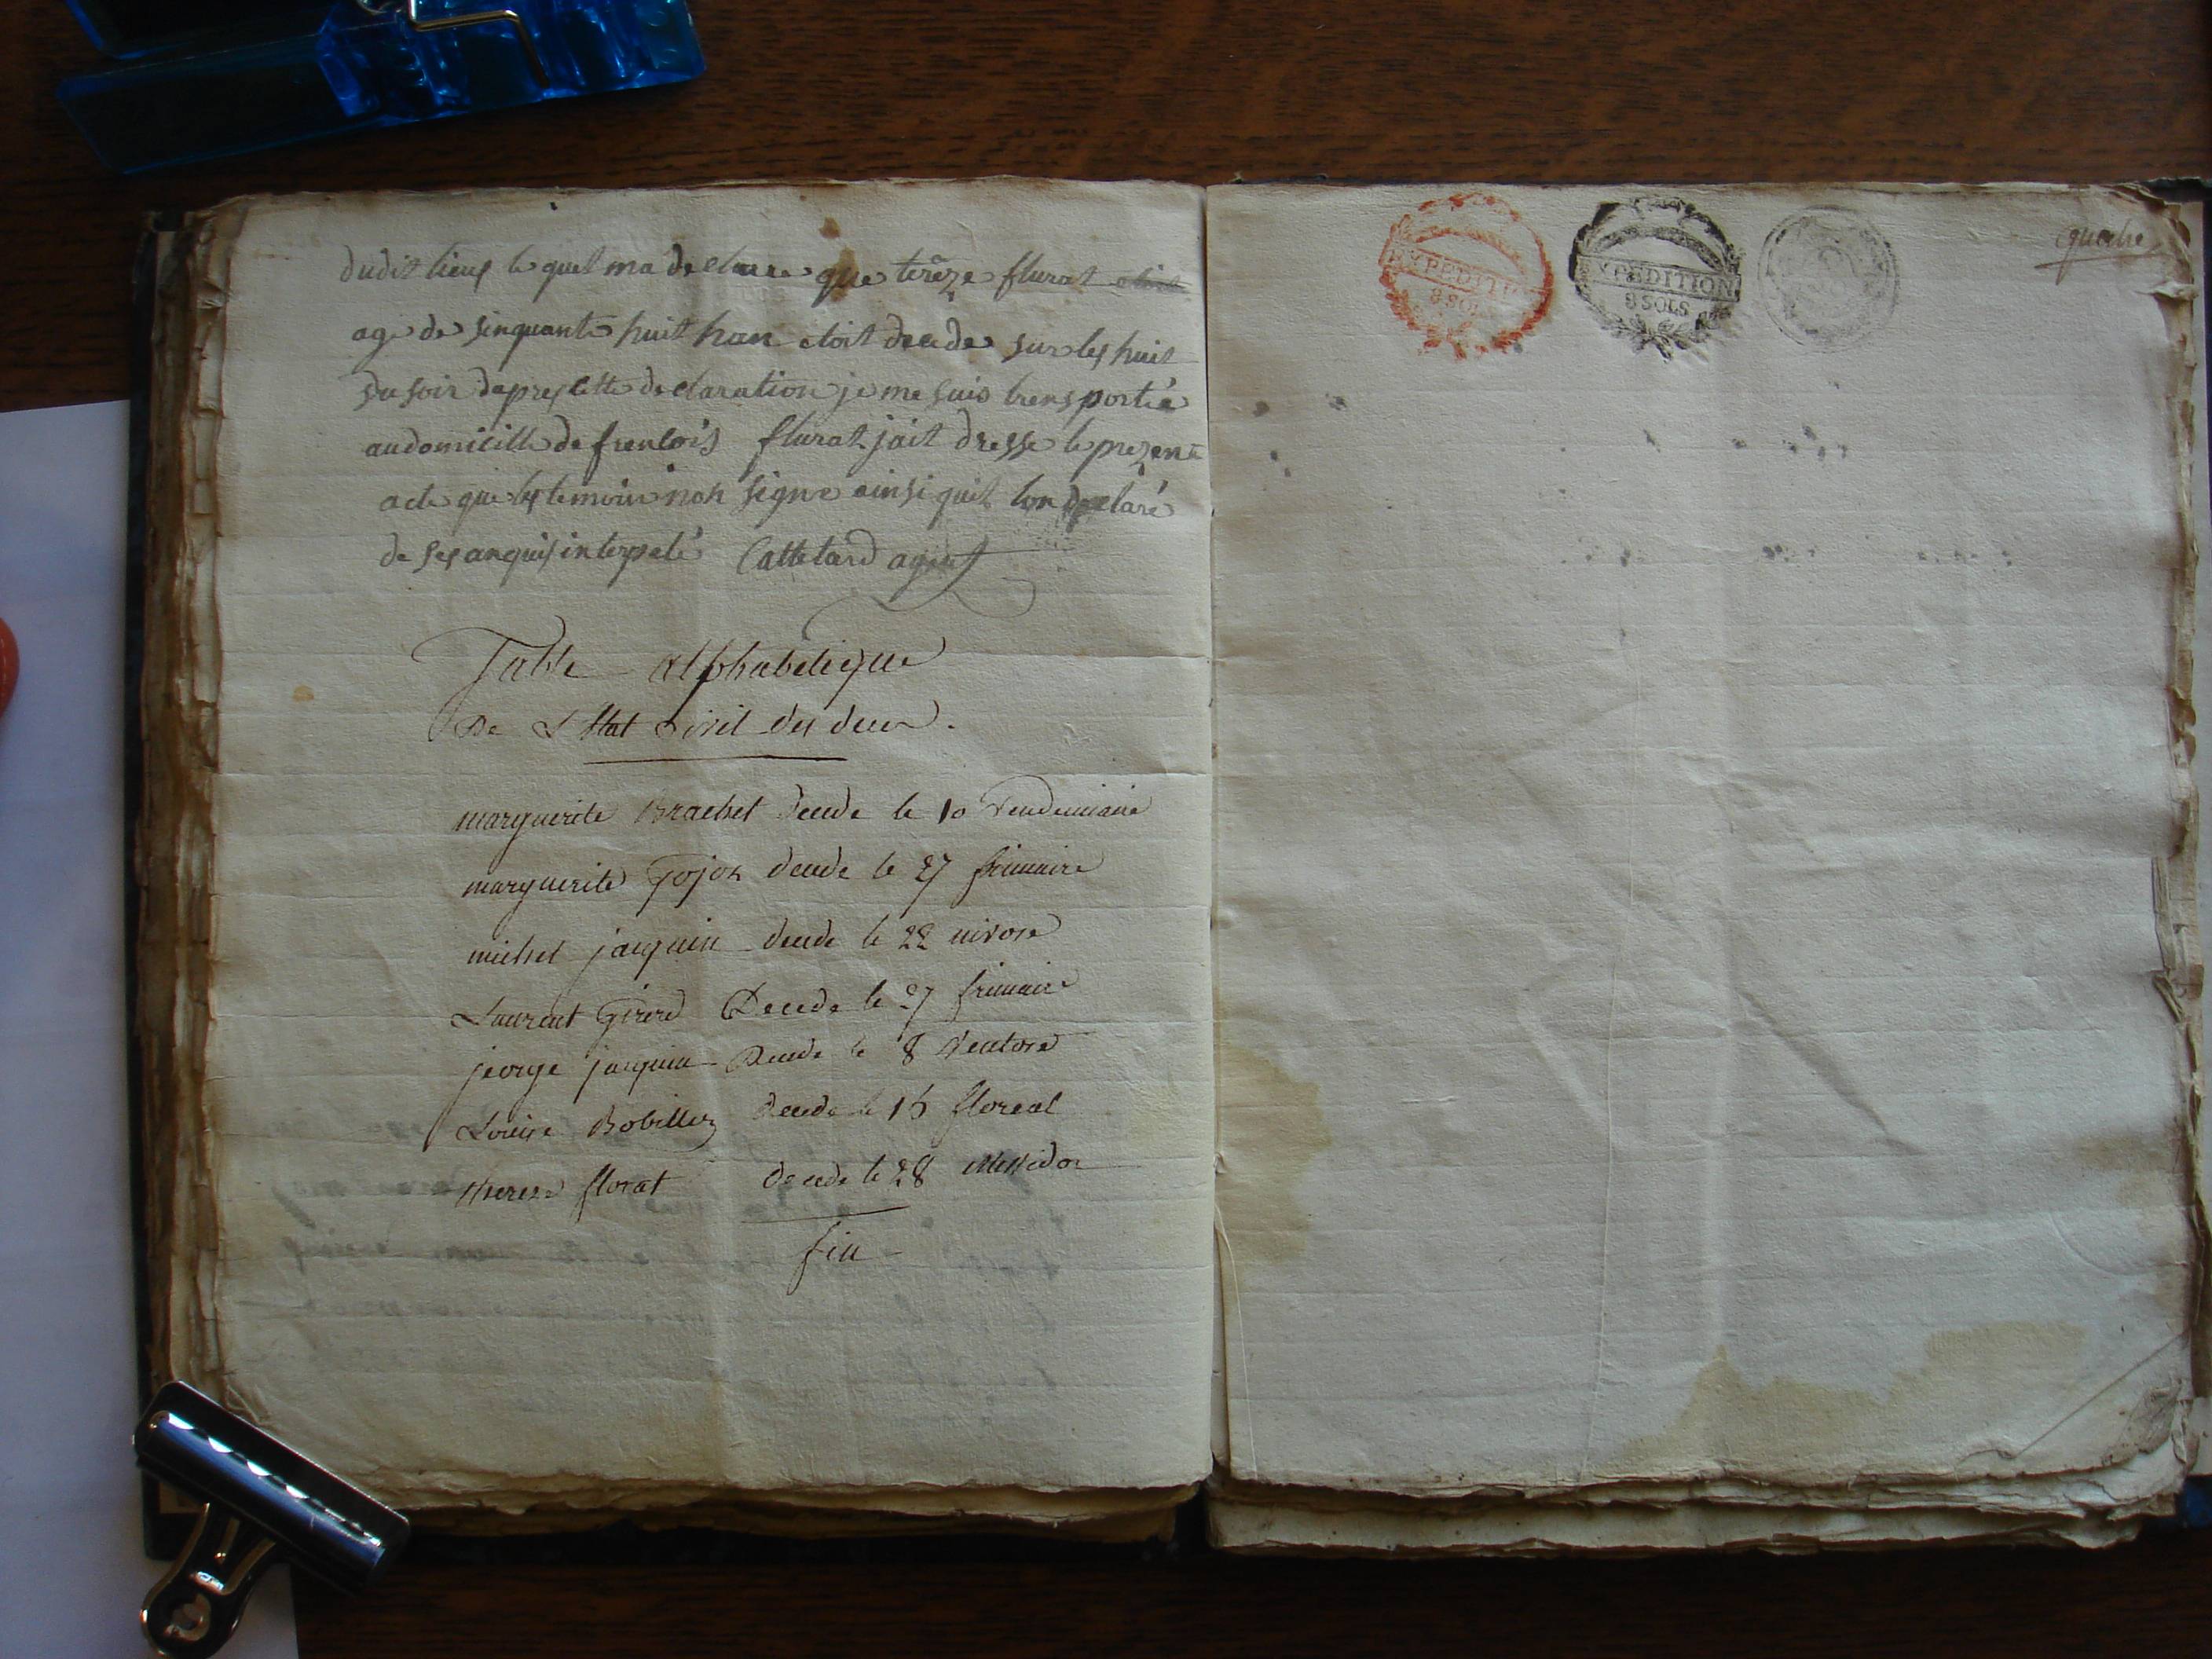 dudit lieux le quel ma declarre que terêze flurat etoit
age de sinquante huit han etoit decede sur les huit
du soir dapres cette declaration je me suis transportée
au domicille de frencois flurat jait dresse le prezent
acte que les temoin non signe ainsi quil lon declaré
de ses anquis interpelé Cattetard agent
Table alphabetique
De L Etat Civil des deces.
marguerite Brachet decede le 10 Vendemiaire
marguerite Gojon decede le 27 frimaire
michel jacquin decede le 22 nivose
Laurent Girerd Decede le 27 frimaire
jeorge jacquin Decede le 8 Ventose
Louise Bobillon decede le 16 floreal
therese florat decede le 28 Messidor
fin
EXPEDITION
8 SOLS
EXPEDITION
8 SOLS